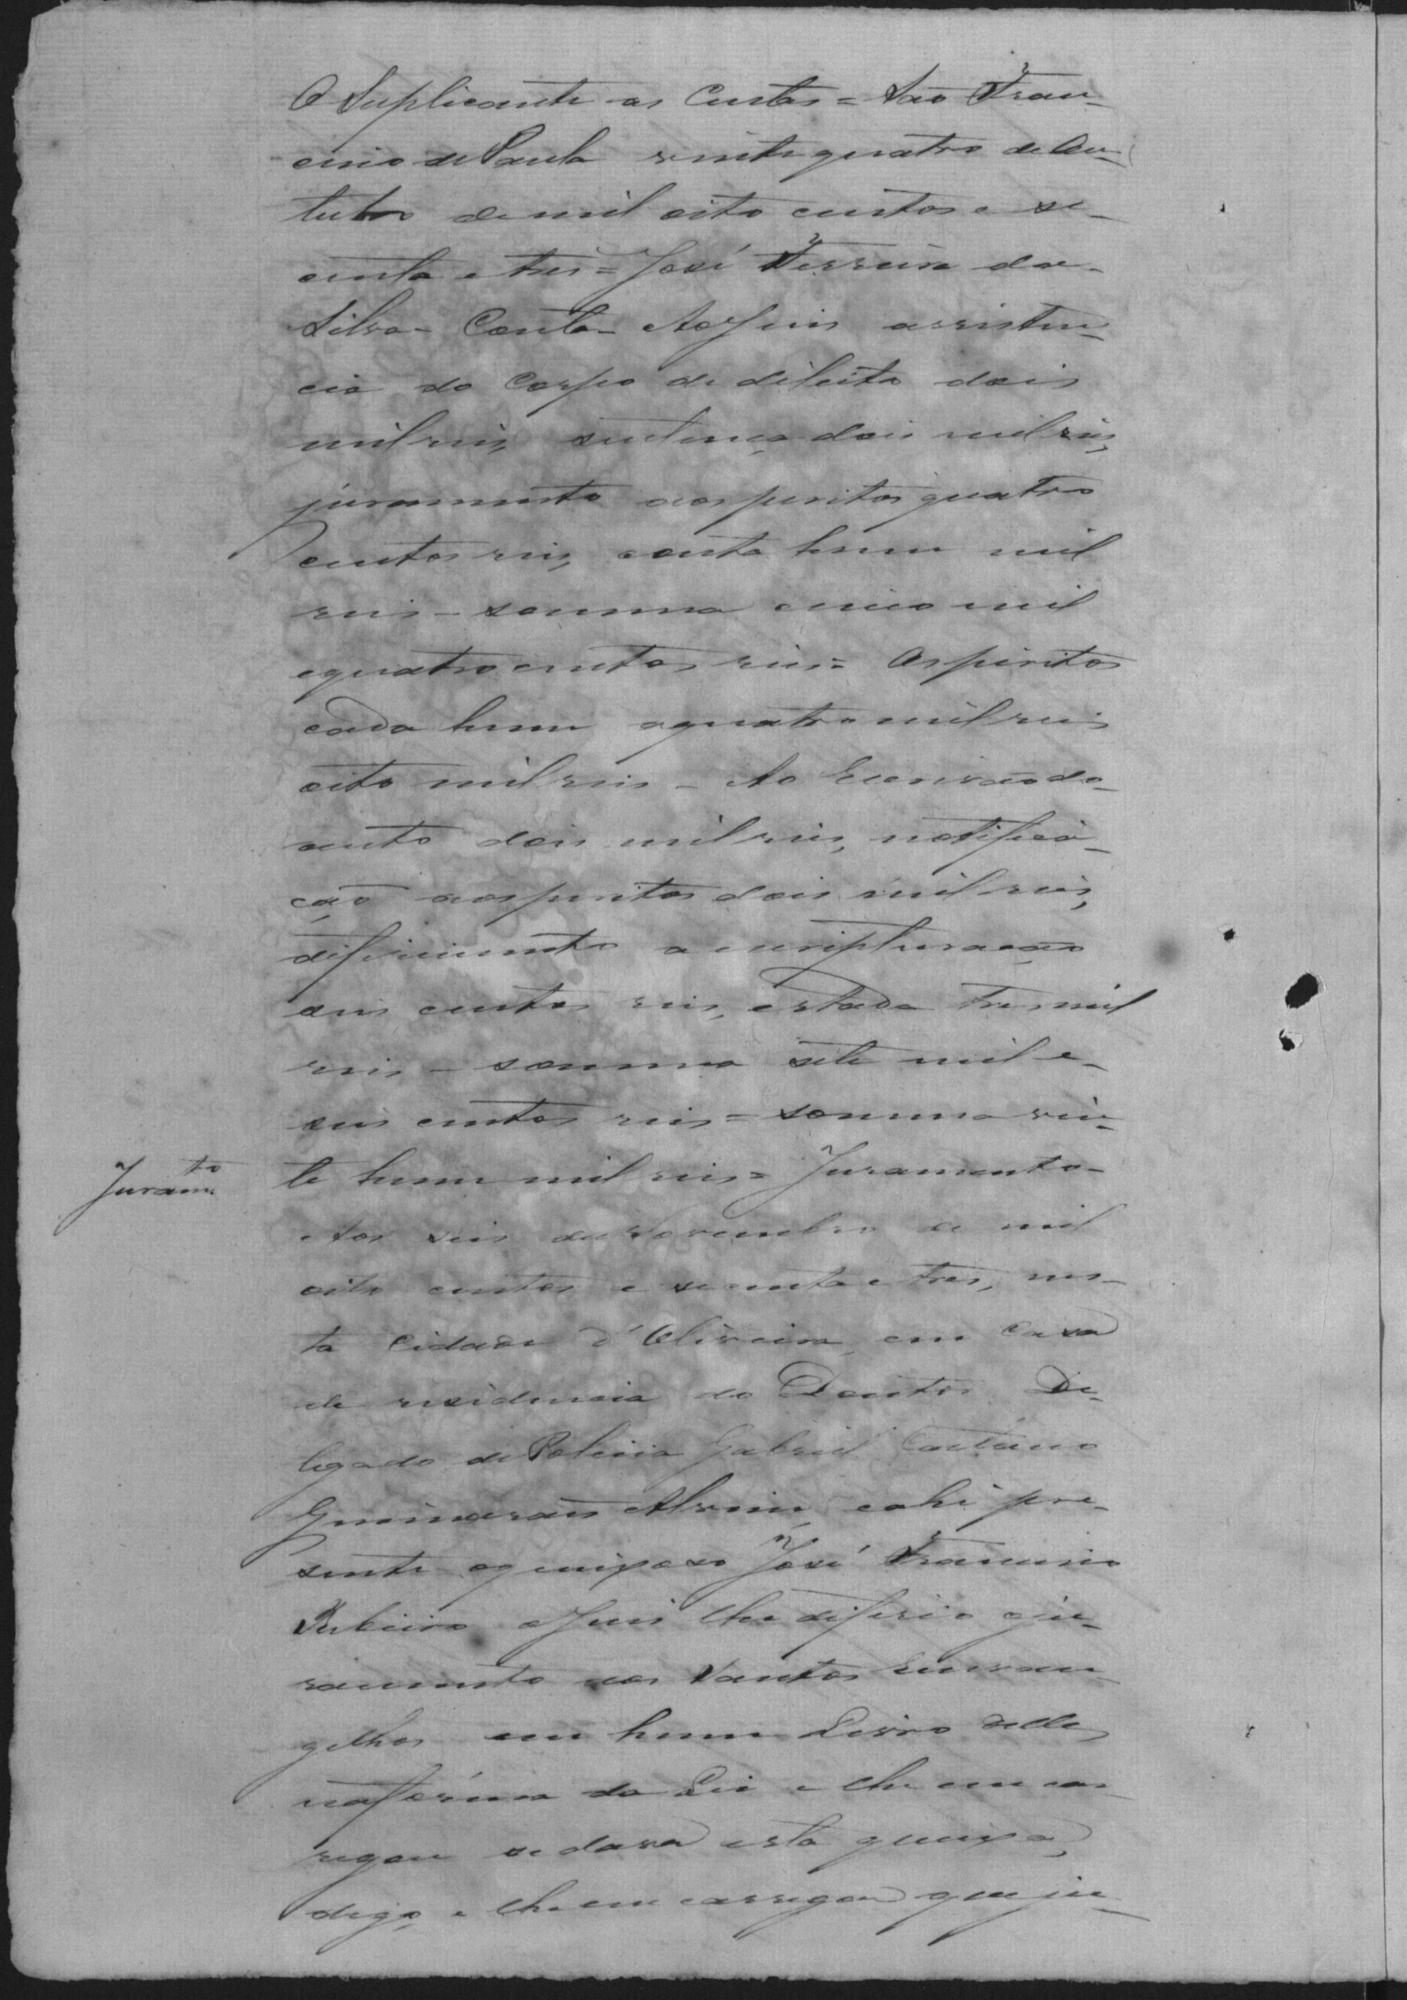 O Suplicante as Custas = São Fran-
cisco de Paula vinte quatro de Ou-
tubro de mil oito centos e se-
centa e tres = José Ferreira da
Silva - Conta - Ao Juis assisten-
cia do Corpo de delicto dois
mil reis, sentença dois mil reis,
juramento aos peritos quatro
centos reis, conta hum mil
reis - somma cinco mil
equatro centos reis = Os peritos
cada hum a quatro mil reis
oito mil reis - Ao Escrivão do
auto dois mil reis, notifica-
ção aos peritos dois mil reis,
diferimento a escripturação
seis centos reis, estada tres mil
reis - somma sete mil e
seis centos reis = somma vin-
te hum mil reis = Juramento -
Juramto
Aos seis de Novembro de mil
oito centos e secenta e tres, nes-
ta Cidade d'Oliveira, em Casa
de residencia do Doutor De-
legado de Policia Gabriel Caetano
Guimarães Alvim, e ahi pre-
sente o queixoso José Francisco
Ribeiro o Juis lhe diferio o ju-
ramento aos Santos Evan-
gelhos em hum Livro delles
na forma da Lei e lhe encar-
regou se dava esta queixa,
digo, e lhe encarregou que ju-